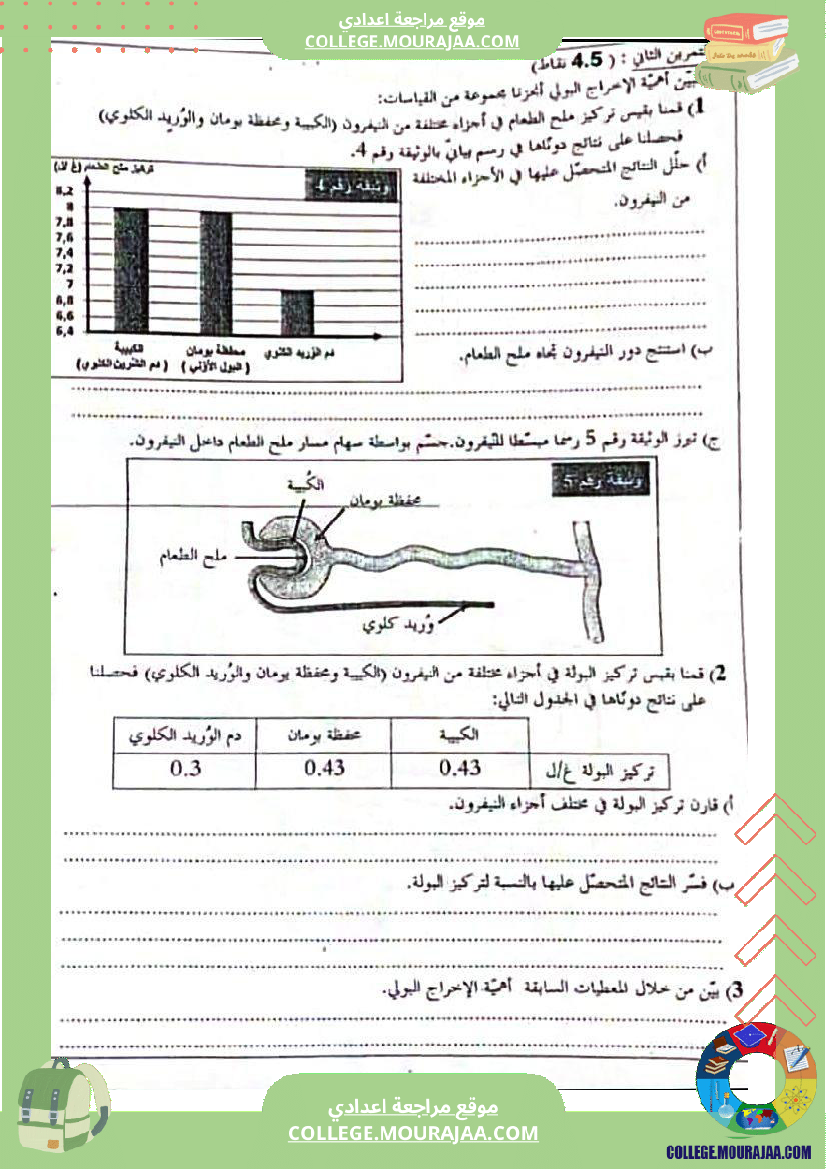 موقع مراجعة اعدادي
COLLEGE.MOURAJAA.COM
تمرين الثاني : ( 4.5 نقاط)
نبيّن أهميّة الإخراج البولي أنجزنا مجموعة من القياسات:
1) قمنا بقيس تركيز ملح الطعام في أجزاء مختلفة من النيفرون (الكبيبة ومحفظة بومان والوُريد الكلوي)
فحصلنا على نتائج دونّاها في رسم بيانيّ بالوثيقة رقم 4.
أ) حلّل النتائج المتحصّل عليها في الأجزاء المختلفة
من النيفرون.
تركيز ملح الطعام (غ/ل)
وثيقة رقم 4
8,2
8
7,8
7,6
7,4
7,2
7
6,8
6,6
6,4
الكبيبة
( دم الشريين الكلوي )
محفظة بومان
( البول الأوّلي )
دم الوُريد الكلوي
ب) استنتج دور النيفرون تجاه ملح الطعام.
ج) تبرز الوثيقة رقم 5 رسما مبسّطا للنّيفرون.جسّم بواسطة سهام مسار ملح الطعام داخل النيفرون.
وثيقة رقم 5
الكُبيبة
محفظة بومان
ملح الطعام
وُريد كلوي
2) قمنا بقيس تركيز البولة في أجزاء مختلفة من النيفرون (الكبيبة ومحفظة بومان والوُريد الكلوي) فحصلنا
على نتائج دونّاها في الجدول التالي:
الكبيبة محفظة بومان دم الوُريد الكلوي
تركيز البولة غ/ل 0.43 0.43 0.3
أ) قارن تركيز البولة في مختلف أجزاء النيفرون.
ب) فسّر النتائج المتحصّل عليها بالنسبة لتركيز البولة.
3) بيّن من خلال المعطيات السابقة أهميّة الإخراج البولي.
موقع مراجعة اعدادي
COLLEGE.MOURAJAA.COM
COLLEGE.MOURAJAA.COM